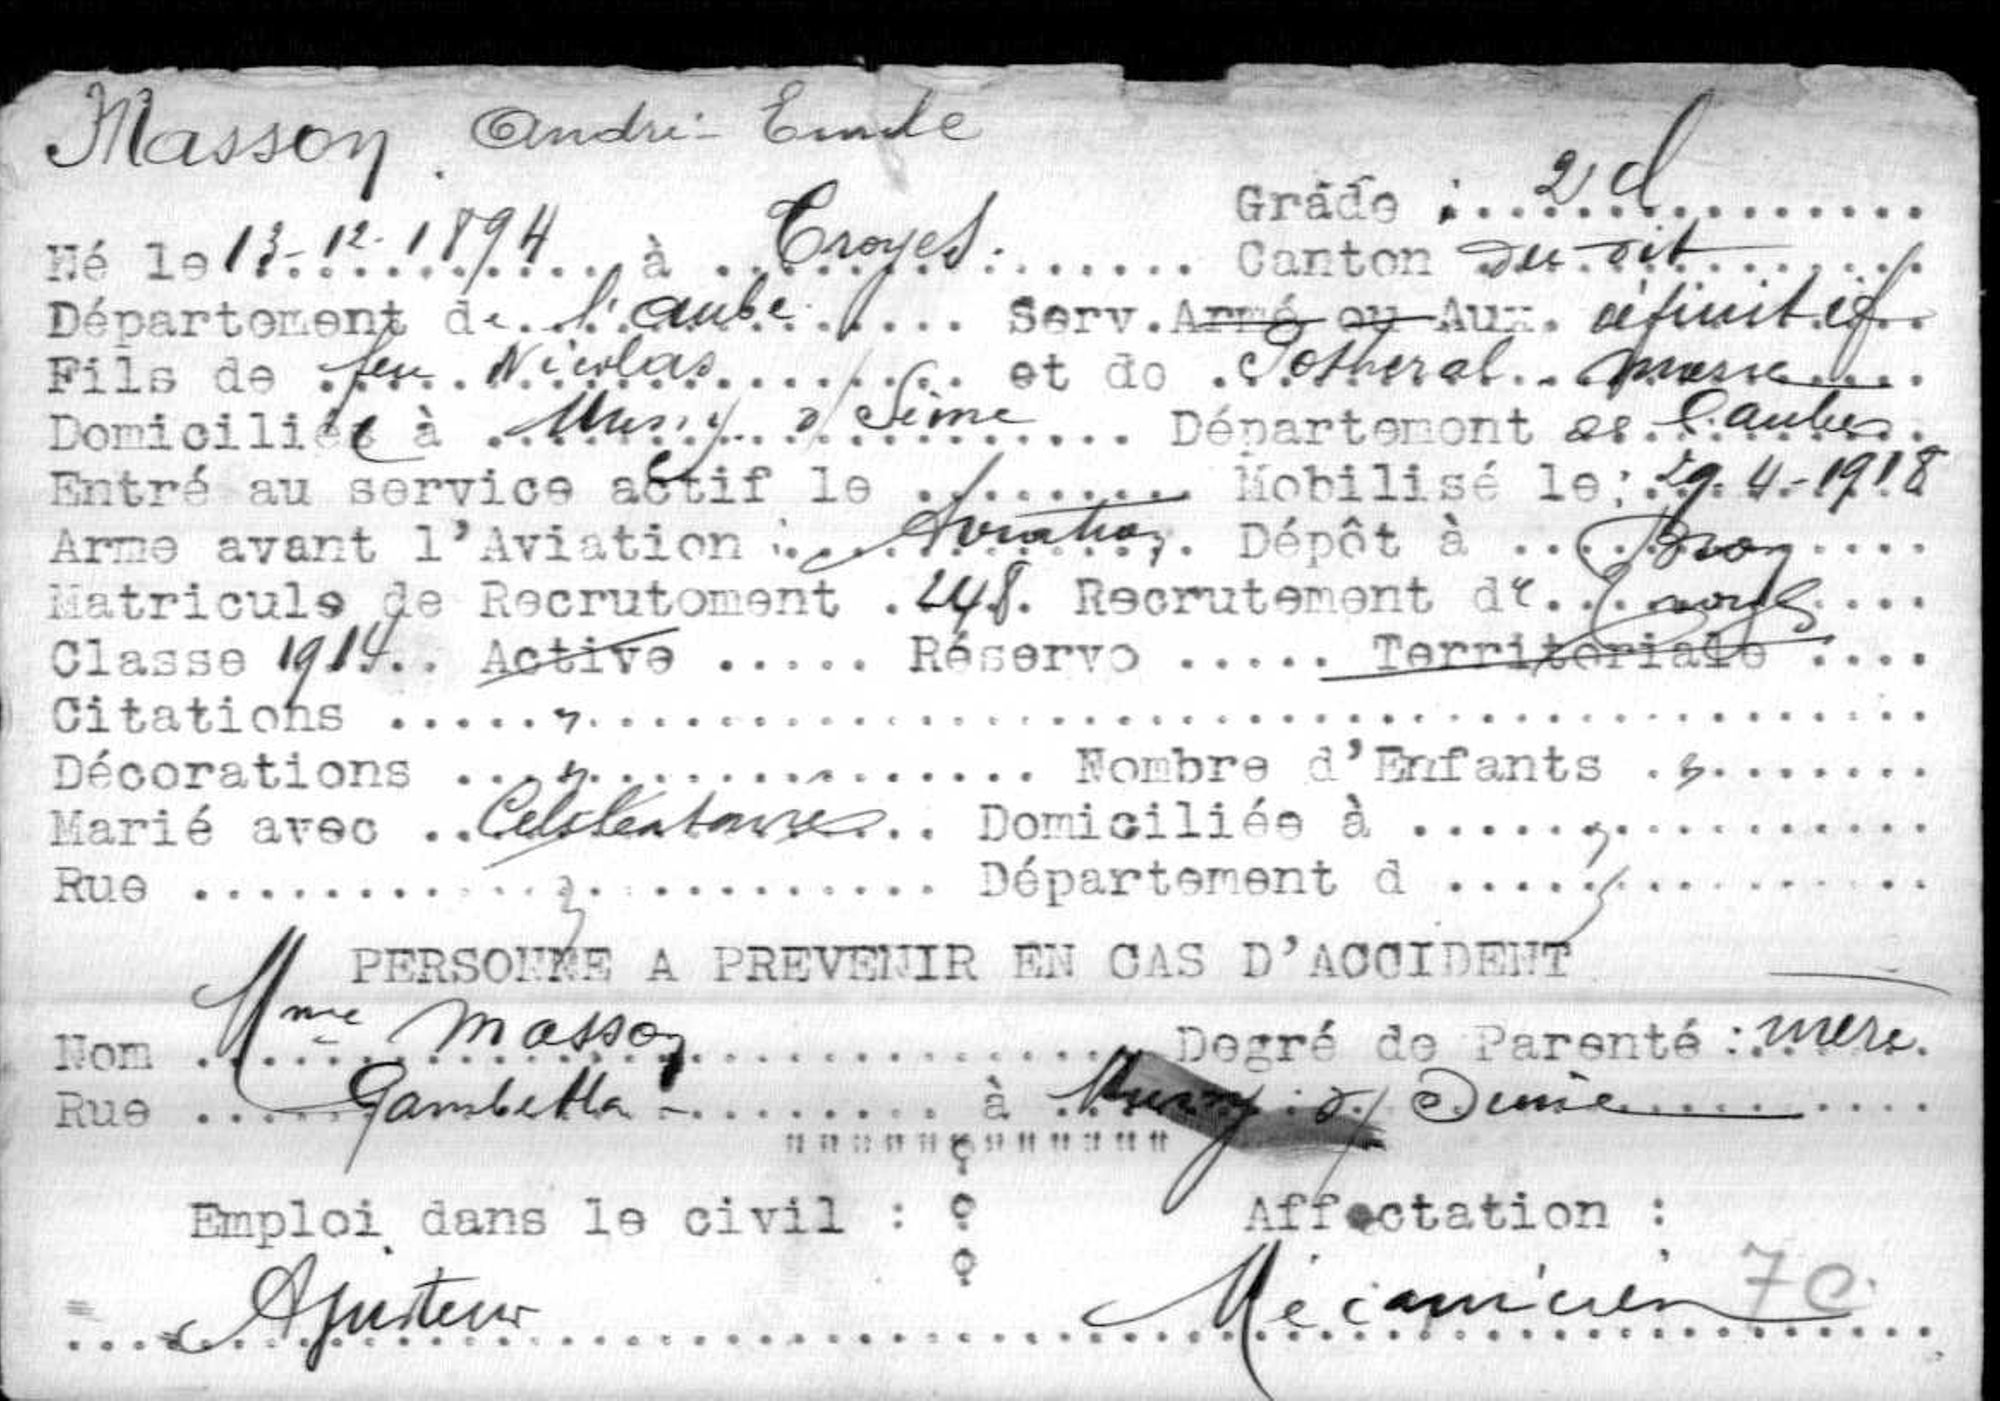 Masson. André - Emile
Grade : 2 cl
Né le 13-12-1894 à Troyes. Canton du dit
Département de l'aube Serv. Armé ou Aux. définitif
Fils de feu Nicolas et de Potheral marie
Domiciliée à Mussy s/ Seine Département de l'aube
Entré au service actif le Mobilisé le: 29.4-1918
Arme avant l'Aviation : Aviation Dépôt à Bron
Matricule de Recrutement 248. Recrutement de Troyes
Classe 1914 Active Réserve Territoriale
Citations "
Décorations " Nombre d'Enfants "
Marié avec Domiciliée à "
Rue " Département d "
PERSONNE A PREVENIR EN CAS D'ACCIDENT
Nom Mme Masson Degré de Parenté : mère.
Rue Gambetta - à Mussy s/ Seine
Emploi dans le civil : Affectation :
Ajusteur Mécanicien 7C